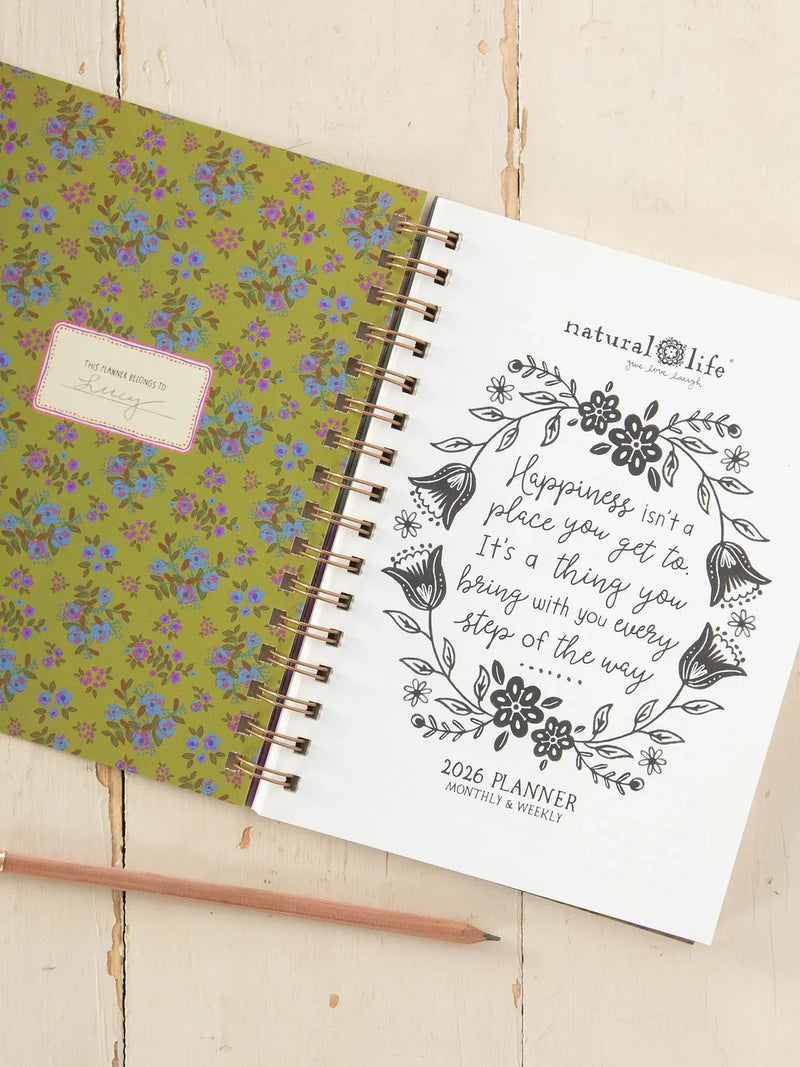 THIS PLANNER BELONGS TO:
Lucy
natural life®
give love laugh
Happiness isn't a
place you get to.
It's a thing you
bring with you every
step of the way
2026 PLANNER
MONTHLY & WEEKLY